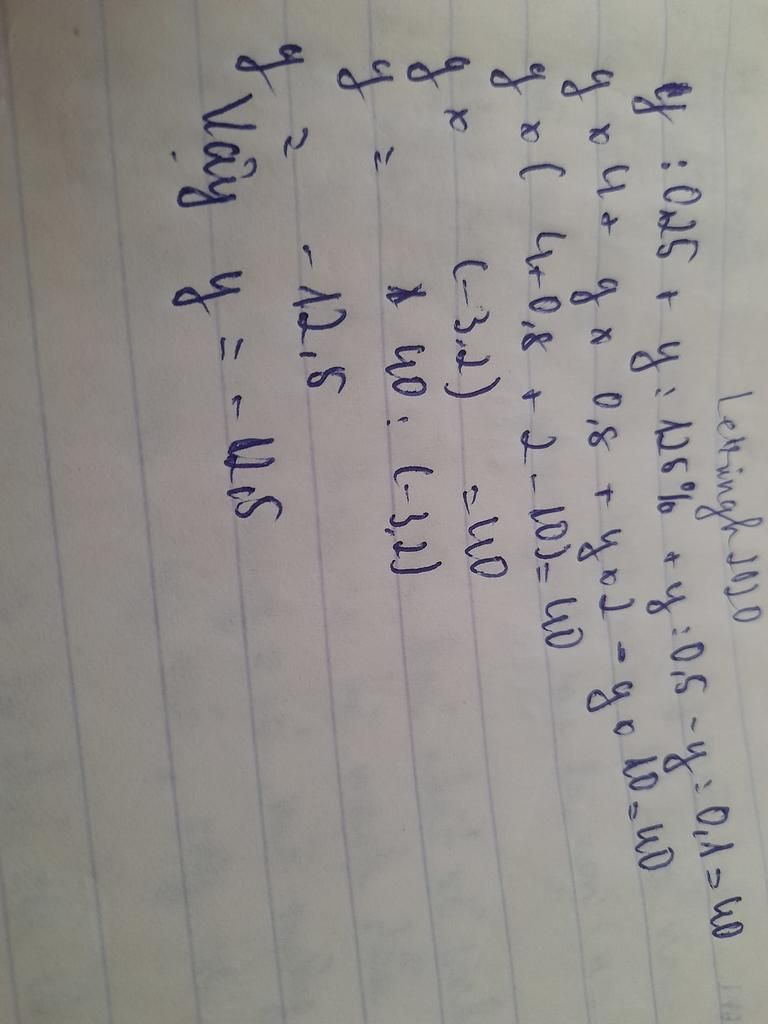 Lettingh2020
y : 0,25 + y : 125% + y : 0,5 - y : 0,1 = 40
y x 4 + y x 0,8 + y x 2 - y x 10 = 40
y x ( 4 + 0,8 + 2 - 10) = 40
y x (-3,2) = 40
y = 40 : (-3,2)
y = -12,5
Vậy y = -12,5